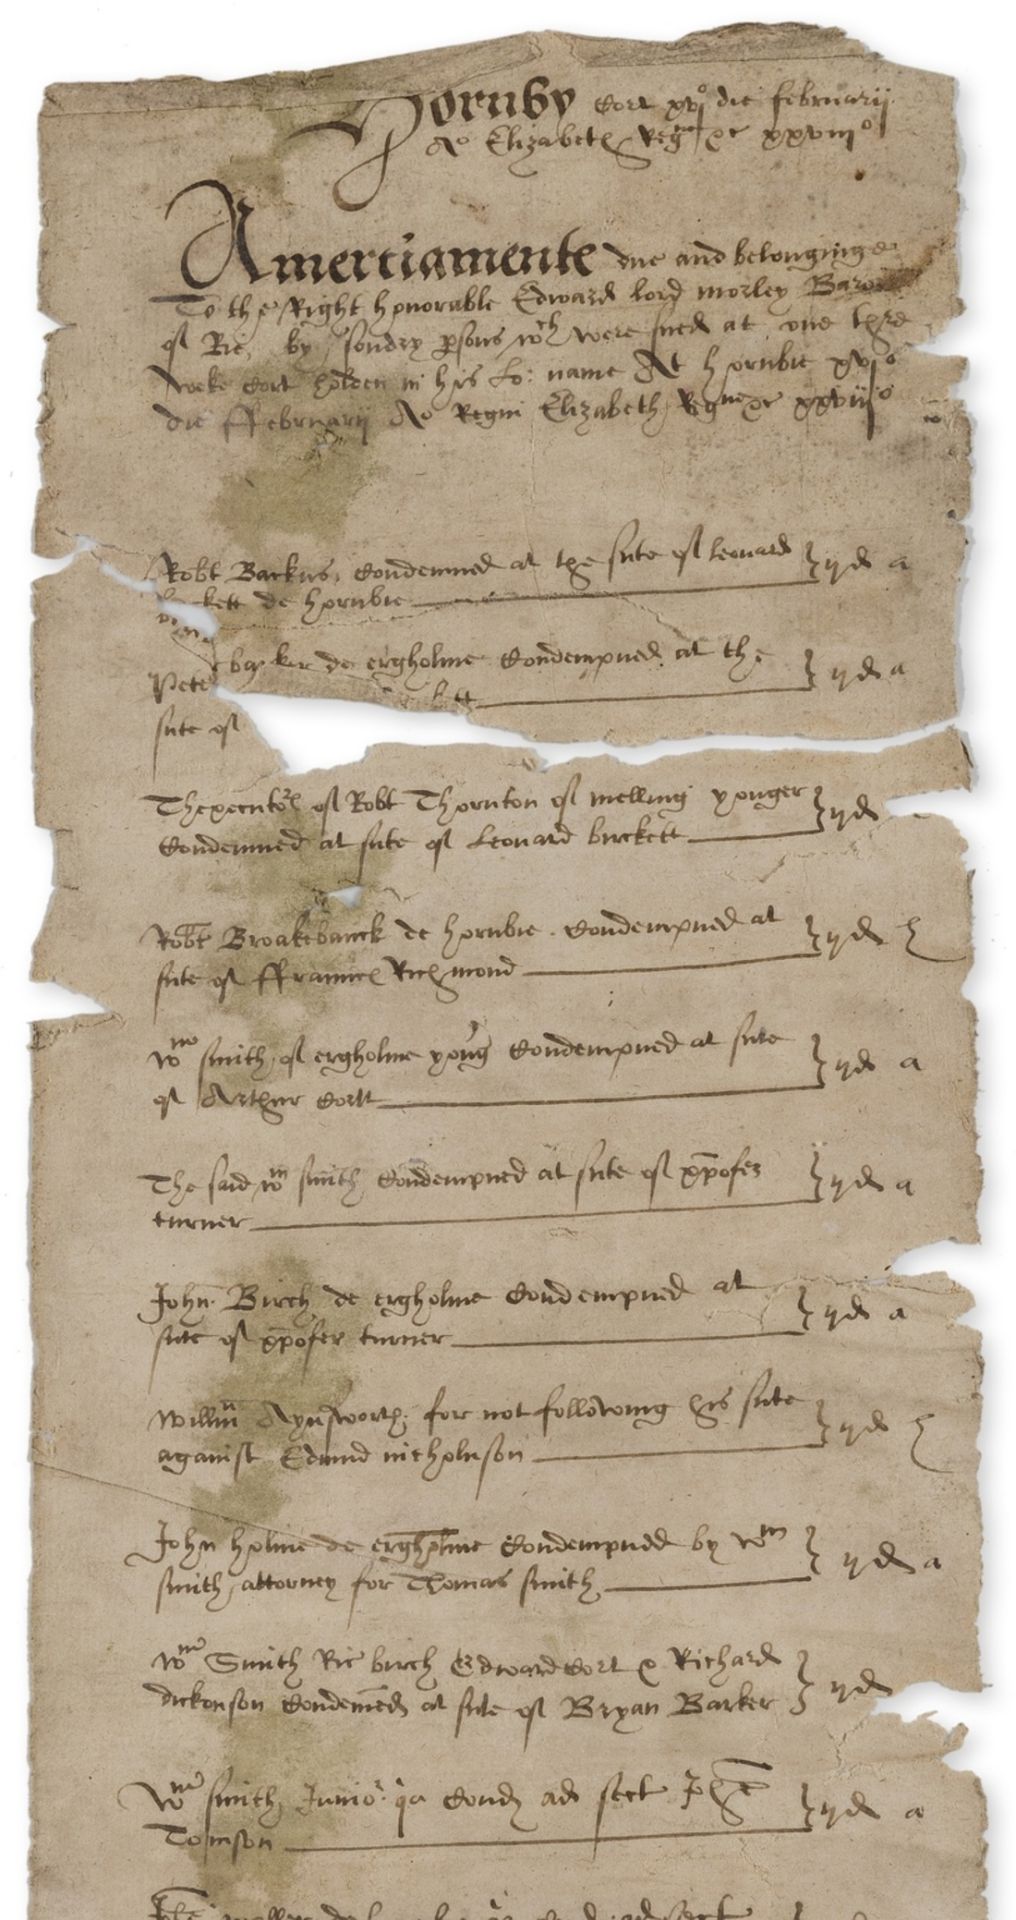 Hornby Cort xvj° die februarij
A° Elizabeth Regne &c xxviij°
Amerciamente due and belonginge
To the Right honorable Edward lord morley Baron
of Rie, by sondry psons wch were sued at one thre
weke Cort holden in his Lo: name At hornbie xvj°
die ffebruarij A° Regni Elizabeth Regne &c xxviij°
Robt Backus, Condemned at the sute of leonard
kett de hornbie ijd a
Pete barker de ergholme Condempned at the ijd a
sute of ett
Thexecutors of Robt Thornton of melling yonger
Condemned at sute of Leonard birckett ijd
Robt Broakebanck de hornbie Condempned at
sute of ffrancis Richmond ijd
Wm smith of ergholme yong Condempned at sute
of Arthur Cortt ijd a
The said wm smith Condempned at sute of xpofer
turner ijd a
John Birch de ergholme Condempned at
sute of xpofer turner ijd a
Willm Aynsworth for not following his sute
against Edmnd nicholnson ijd
John holme de ergholme Condempned by Wm
smith attorney for Thomas smith ijd a
Wm Smith Ric birch Edward Cort & Richard
dickonson Condemed at sute of Bryan Barker ijd
Wm smith Junior qa Cond ad sect Johe
Tomson ijd a